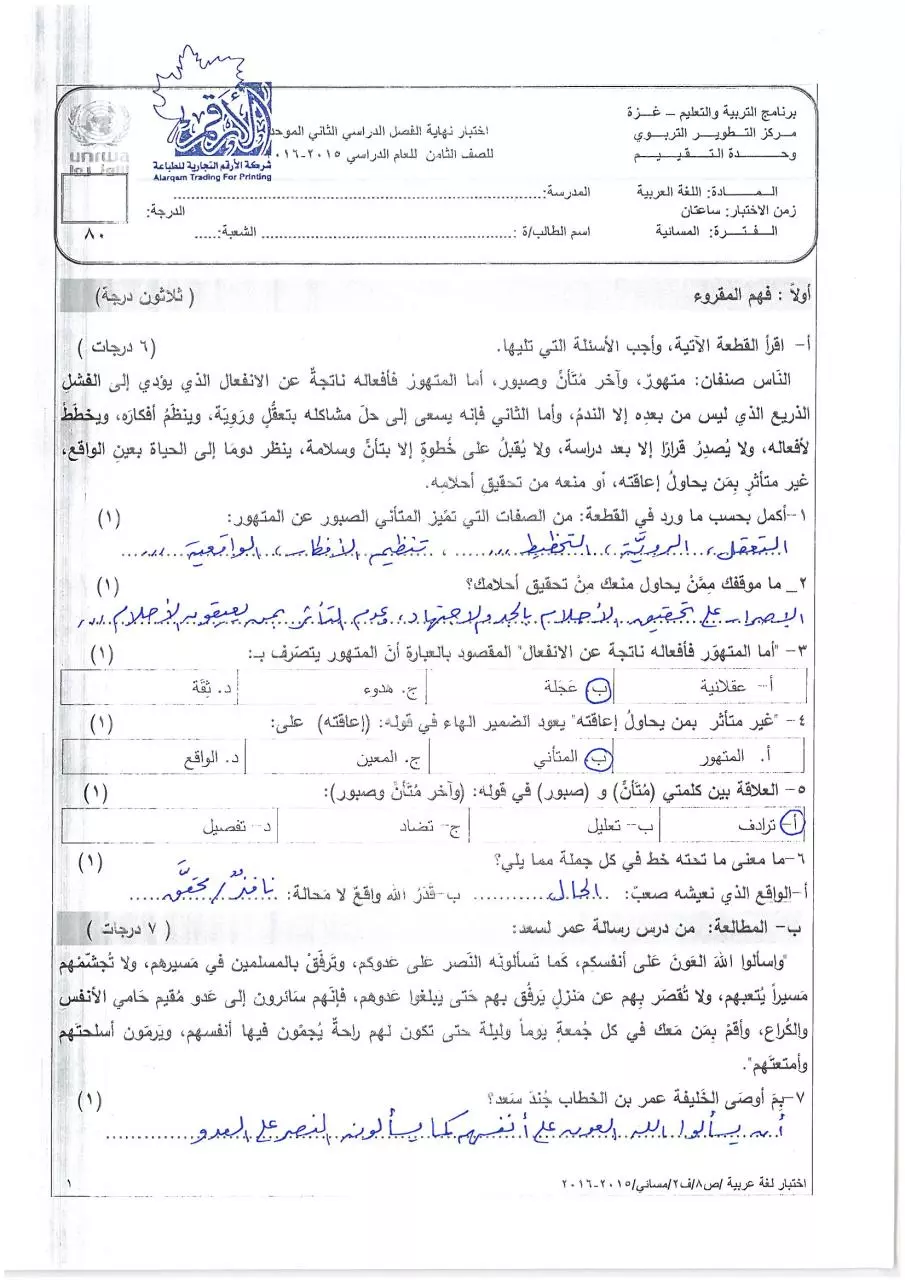 برنامج التربية والتعليم – غـزة
مركز التطوير التربوي
وحدة التقييم
اختبار نهاية الفصل الدراسي الثاني الموحد
للصف الثامن للعام الدراسي ٢٠١٥-٢٠١٦
الأرقم
شركة الأرقم التجارية للطباعة
Alarqam Trading For Printing
unrwa
الأونروا
المـــادة: اللغة العربية
المدرسة:
زمن الاختبار: ساعتان
الدرجة:
الفـتـرة: المسائية
اسم الطالب/ة :
الشعبة:
٨٠
أولاً : فهم المقروء ( ثلاثون درجة)
أ- اقرأ القطعة الآتية، وأجب الأسئلة التي تليها. (٦ درجات )
النَاس صنفان: متهورٌ، وآخر مُتَأنٍّ وصبور، أما المتهورُ فأفعاله ناتجةٌ عن الانفعال الذي يؤدي إلى الفشلِ
الذريع الذي ليس من بعدِه إلا الندمُ، وأما الثاني فإنه يسعى إلى حلِّ مشاكله بتعقُّلٍ ورَوِيَّة، وينظمُ أفكارَه، ويخططُ
لأفعاله، ولا يُصدِرُ قرارًا إلا بعد دراسة، ولا يُقبلُ على خُطوةٍ إلا بتأنٍ وسلامة، ينظر دومًا إلى الحياة بعينِ الواقع،
غير متأثرٍ بِمَن يحاولُ إعاقته، أو منعه من تحقيقِ أحلامِه.
١-أكمل بحسب ما ورد في القطعة: من الصفات التي تميّز المتأني الصبور عن المتهور: (١)
التعقل، الرويَّة، التخطيط ، تنظيم الأفكار، الواقعية
٢_ ما موقفك مِمَّنْ يحاول منعك مِنْ تحقيق أحلامك؟ (١)
الإصرار على تحقيق الأحلام بالجد والاجتهاد، وعدم التأثر بمن يعيقون الأحلام
٣- "أما المتهوّر فأفعاله ناتجة عن الانفعال" المقصود بالعبارة أنّ المتهور يتصرف بـ: (١)
أ- عقلانية ب عَجَلة ج. هدوء د. ثِقَة
٤- "غير متأثر بمن يحاولُ إعاقته" يعود الضمير الهاء في قوله: (إعاقته) على: (١)
أ. المتهور ب المتأني ج. المعين د. الواقع
٥- العلاقة بين كلمتي (مُتَأنٍّ) و (صبور) في قوله: (وآخر مُتَأنٍّ وصبور): (١)
أ- ترادف ب- تعليل ج- تضاد د- تفصيل
٦-ما معنى ما تحته خط في كل جملة مما يلي؟ (١)
أ-الواقع الذي نعيشه صعبٌ: الحال ب-قَدَرُ الله واقعٌ لا مَحالة: نافذٌ/ محقق
ب- المطالعة: من درس رسالة عمر لسعد: ( ٧ درجات )
"واسألوا اللهَ العَونَ عَلى أنفسكِم، كَما تَسألونَه النَصر عَلى عَدوكم، وتَرفّقْ بالمسلمين في مَسيرهم، ولا تُجشّمْهم
مَسيراً يُتعبهم، ولا تُقصّر بِهم عن مَنزلٍ يَرفُق بهم حَتى يَبلغوا عَدوهم، فإنّهم سَائرون إلى عَدو مُقيم حَامي الأنفس
والكُراع، وأقمْ بِمَن مَعك في كل جُمعةٍ يوماً وليلة حتى تكون لهم راحةً يُجمّون فيها أنفسهم، ويَرمّون أسلحتَهم
وأمتعتَهم".
٧-بِمَ أوصَى الخَليفة عمر بن الخطاب جُندَ سَعد؟ (١)
أن يسألوا الله العون على أنفسهم كما يسألون النصر على العدو
اختبار لغة عربية /ص٨/ف٢/مسائي/٢٠١٥-٢٠١٦
١